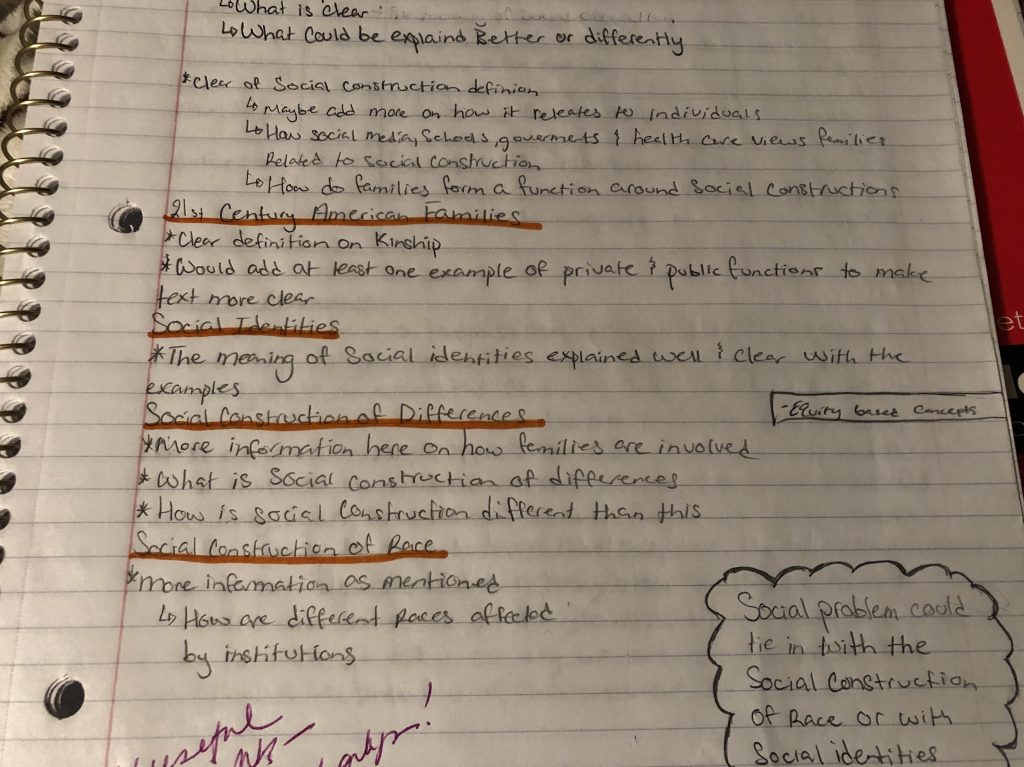 ↳What is clear
↳What Could be explaind Better or differently
*Clear of Social construction definion
↳Maybe add more on how it releates to individuals
↳How social media, Schools, goverments & health care views families
Related to Social Construction
↳How do families form a function around Social Constructions
21st Century American Families
*Clear definition on Kinship
*Would add at least one example of private & public functions to make
text more clear
Social Identities
*The meaning of Social identities explained well & clear with the
examples
Social Construction of Differences
-Equity based Concepts
*More information here on how families are involved
*What is Social construction of differences
*How is social Construction different than this
Social Construction of Race
*more information as mentioned
↳How are different Races affected
by institutions
Social problem could
tie in with the
Social Construction
of Race or with
Social identities
useful